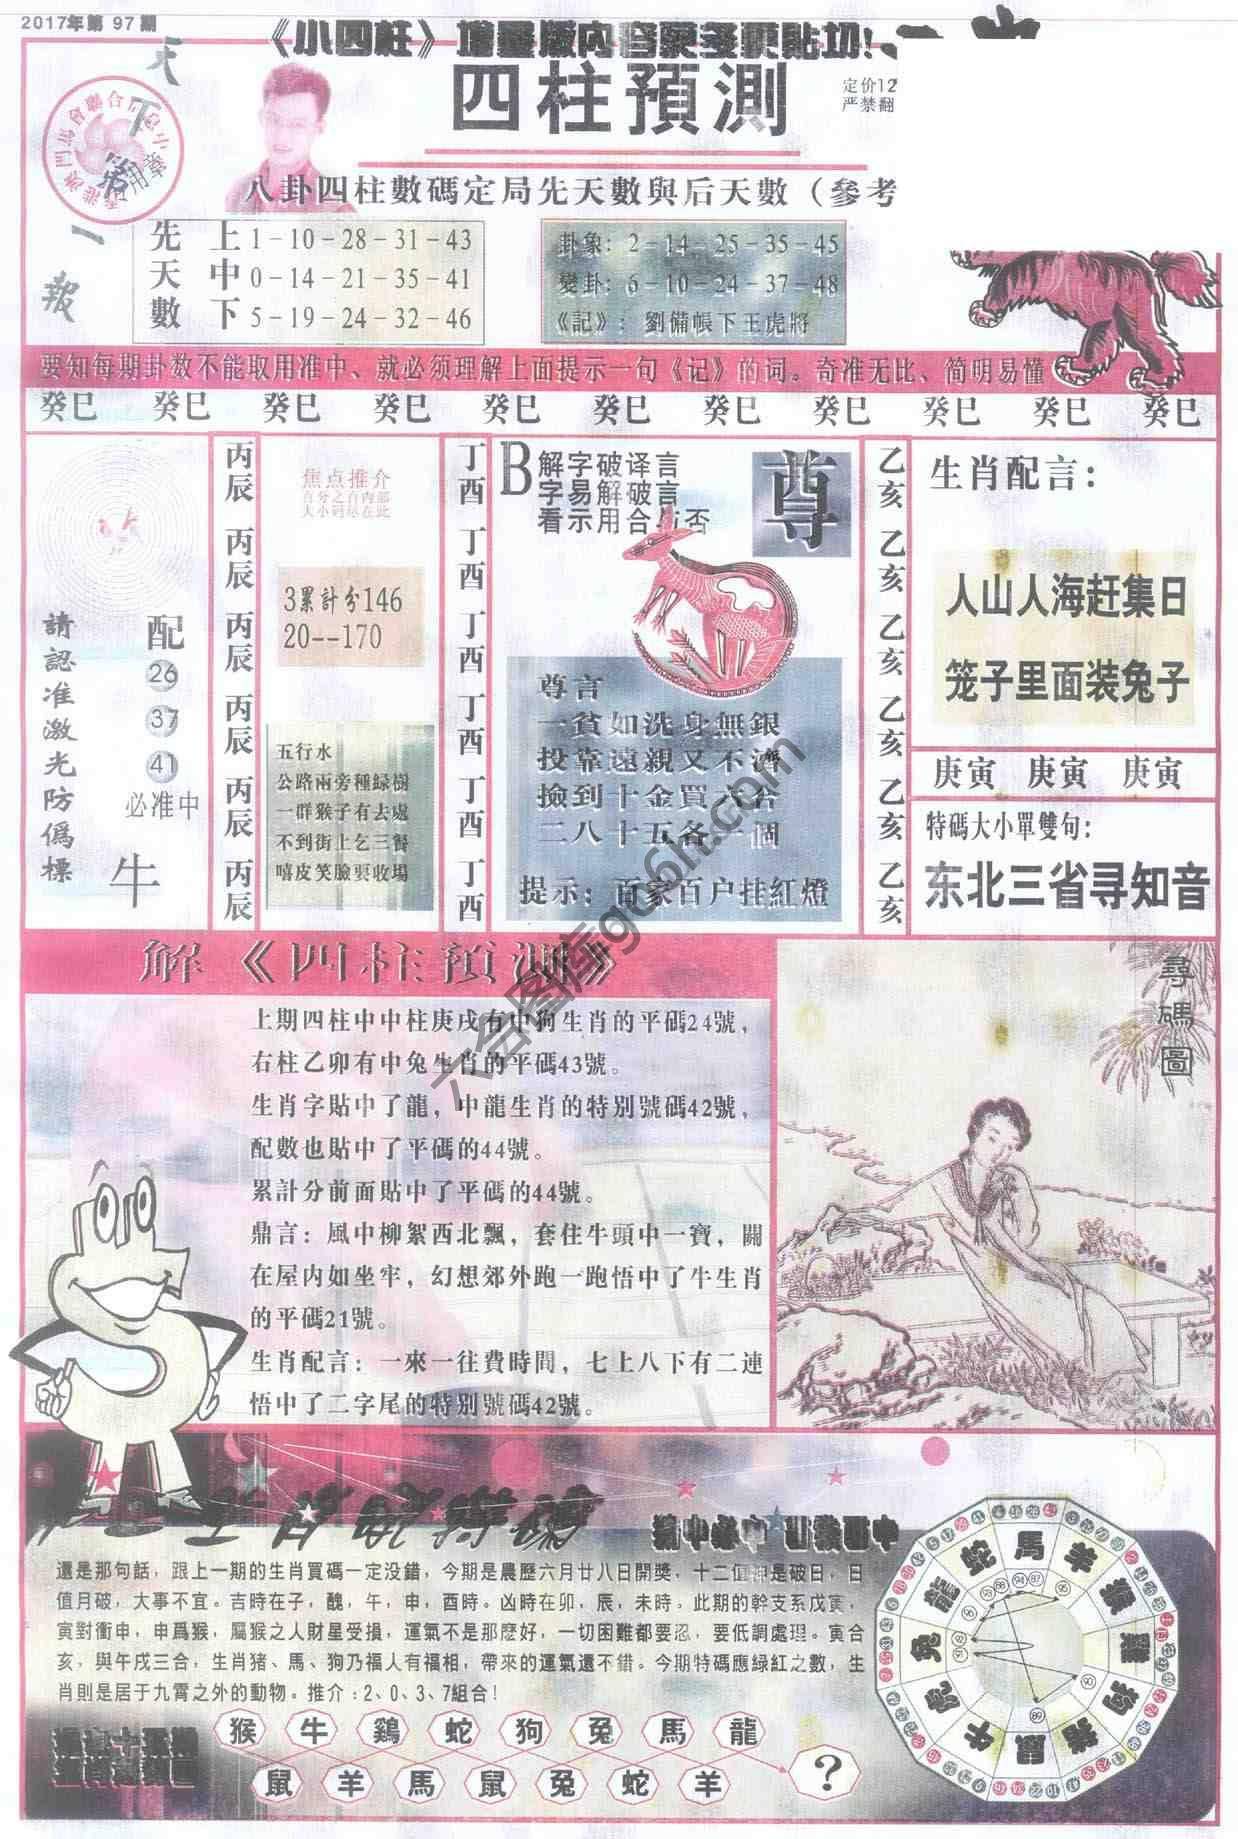 2017年第 97 期
四柱預測
定价12
严禁翻
八卦四柱數碼定局先天數與后天數（參考
天下第一報
先天數
上 1－10－28－31－43
中 0－14－21－35－41
下 5－19－24－32－46
卦象：2－14－25－35－45
變卦：6－10－24－37－48
《記》：劉備帳下王虎將
要知每期卦数不能取用准中、就必须理解上面提示一句《记》的词。奇准无比、简明易懂
癸巳 癸巳 癸巳 癸巳 癸巳 癸巳 癸巳 癸巳 癸巳 癸巳 癸巳
請認准激光防僞標
配
26
37
41
必准中
牛
丙辰 丙辰 丙辰 丙辰 丙辰 丙辰
焦点推介
百分之百内部
大小码尽在此
3累計分146
20--170
五行水
公路兩旁種緑樹
一群猴子有去處
不到街上乞三餐
嘻皮笑臉要收場
丁酉 丁酉 丁酉 丁酉 丁酉 丁酉
B
解字破译言
字易解破言
看示用合与否
尊
尊言
一貧如洗身無銀
投靠遠親又不濟
撿到十金買六合
二八十五各一個
提示：百家百户挂紅燈
乙亥 乙亥 乙亥 乙亥 乙亥 乙亥
生肖配言：
人山人海赶集日
笼子里面装兔子
庚寅 庚寅 庚寅
特碼大小單雙句：
东北三省寻知音
解《四柱預測》
上期四柱中中柱庚戌有中狗生肖的平碼24號，
右柱乙卯有中兔生肖的平碼43號。
生肖字貼中了龍，中龍生肖的特別號碼42號，
配數也貼中了平碼的44號。
累計分前面貼中了平碼的44號。
鼎言：風中柳絮西北飄，套住牛頭中一寶，關
在屋内如坐牢，幻想郊外跑一跑悟中了牛生肖
的平碼21號。
生肖配言：一來一往費時間，七上八下有二連
悟中了二字尾的特別號碼42號。
尋碼圖
還是那句話，跟上一期的生肖買碼一定没錯，今期是農歷六月廿八日開獎，十二值神是破日，日
值月破，大事不宜。吉時在子，醜，午，申，酉時。凶時在卯，辰，未時，此期的幹支系戊寅，
寅對衝申，申爲猴，屬猴之人財星受損，運氣不是那麽好，一切困難都要忍，要低調處理。寅合
亥，與午戌三合，生肖猪、馬、狗乃福人有福相，帶來的運氣還不錯。今期特碼應緑紅之數，生
肖則是居于九霄之外的動物。推介：2、0、3、7組合！
猴 牛 鷄 蛇 狗 兔 馬 龍
鼠 羊 馬 鼠 兔 蛇 羊
？
馬 羊 猴 鷄 狗 猪 鼠 牛 虎 兔 龍 蛇
六合图库gc6h.com